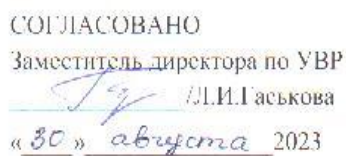 СОГЛАСОВАНО
Заместитель директора по УВР
/Л.И.Гаськова
« 30 » августа 2023